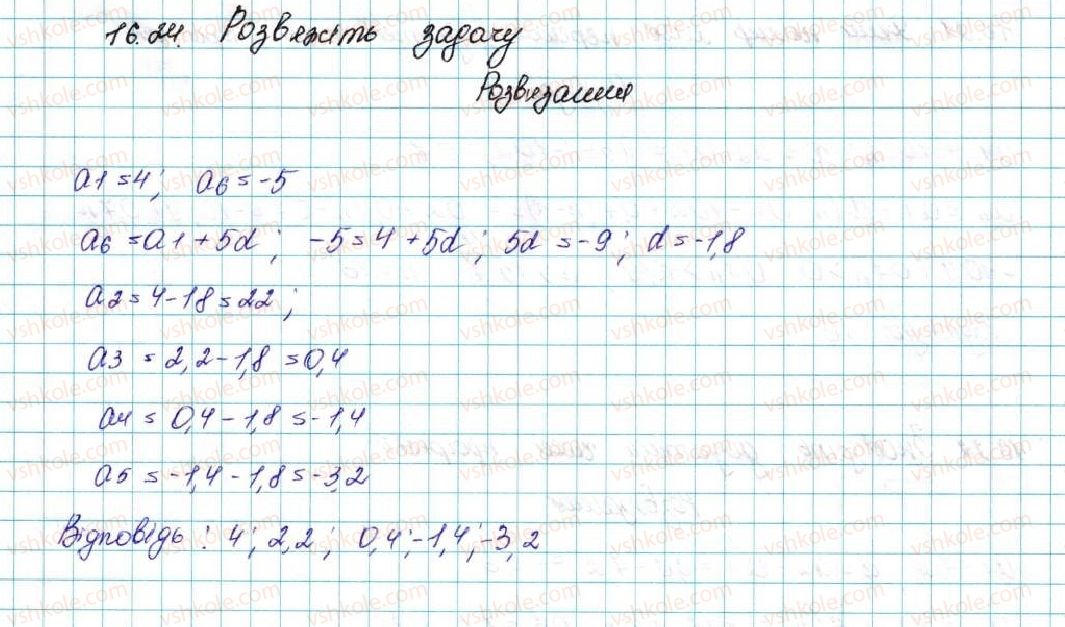 16.24. Розвяжіть задачу
Розвязання
a1 = 4; a6 = -5
a6 = a1 + 5d; -5 = 4 + 5d; 5d = -9; d = -1,8
a2 = 4 - 18 = 22;
a3 = 2,2 - 1,8 = 0,4
a4 = 0,4 - 1,8 = -1,4
a5 = -1,4 - 1,8 = -3,2
Відповідь: 4; 2,2; 0,4; -1,4; -3,2